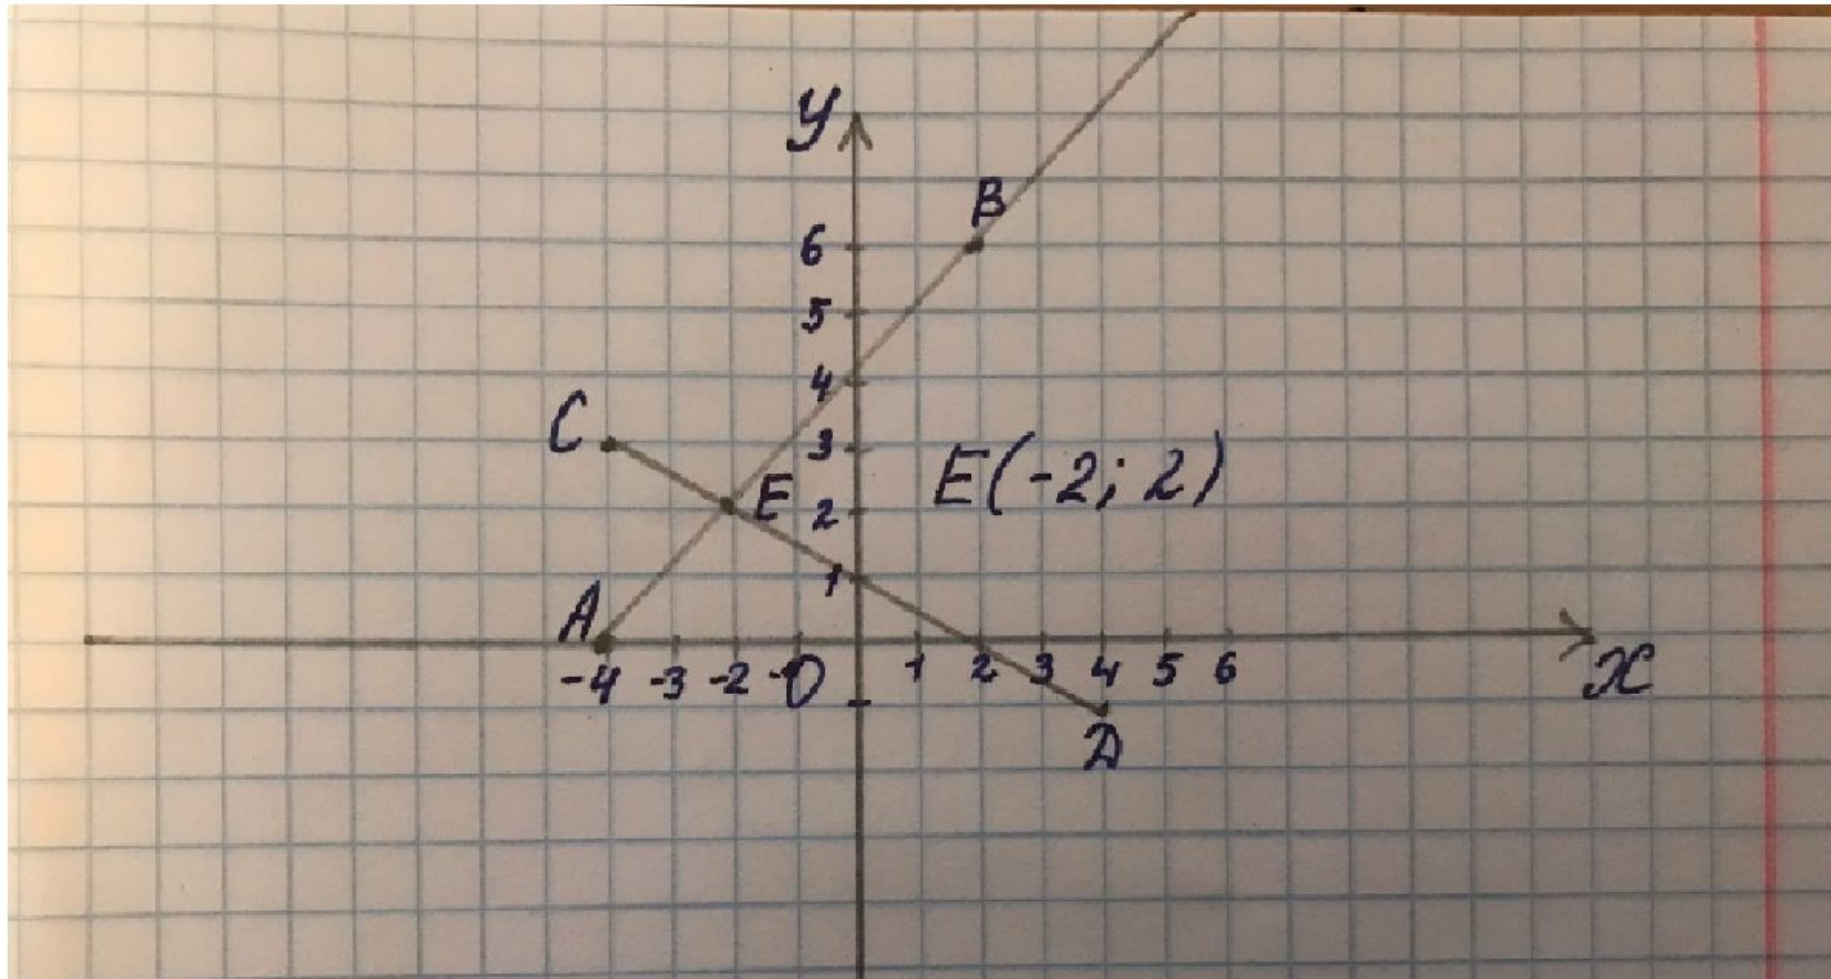 У
B
6
5
4
C
3
E(-2; 2)
E
2
1
A
-4 -3 -2 -1 0 1 2 3 4 5 6
x
D